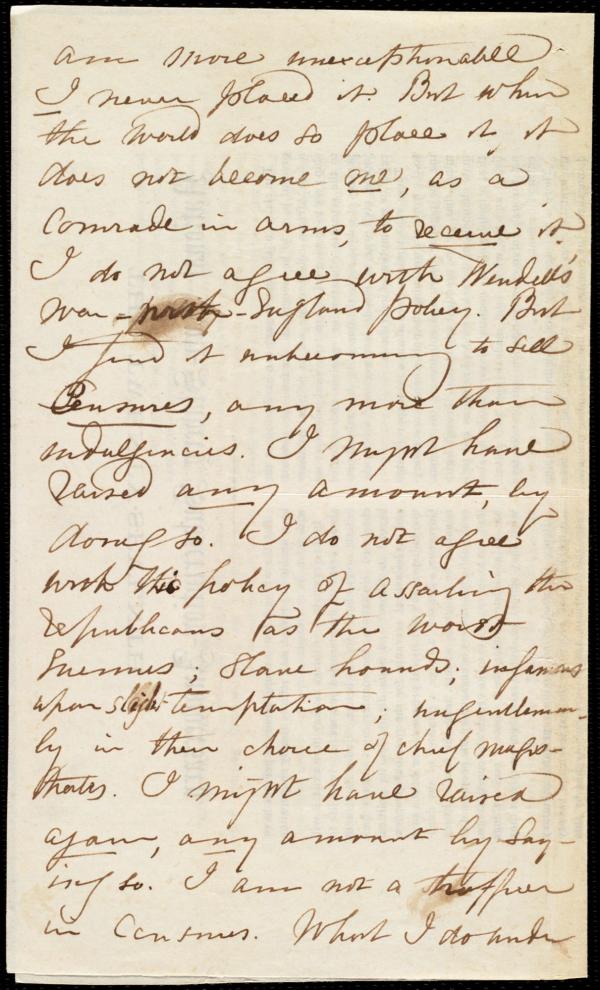 am more unexceptionable
I never placed it. But when
the world does so place it, it
does not become me, as a
Comrade in arms, to receive it.
I do not agree with Wendell's
war - with - England policy. But
I find it unbecoming to sell
Censures, any more than
indulgencies. I might have
raised any amount, by
doing so. I do not agree
with the policy of assailing the
republicans as the worst
Enemies; slave hounds; infamous
upon slight temptation; ungentleman-
ly in their choice of chief magis-
trates. I might have raised
again, any amount by say-
ing so. I am not a trafficer
in Censures. What I do under